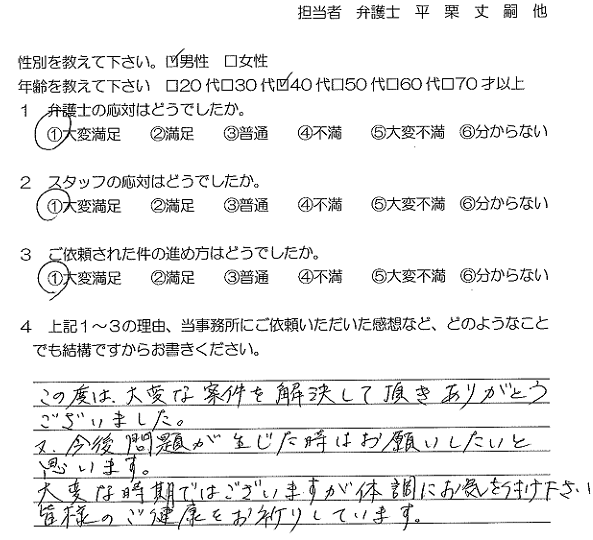 担当者 弁護士 平 栗 丈 嗣 他
性別を教えて下さい。☑男性 □女性
年齢を教えて下さい □20代□30代☑40代□50代□60代□70才以上
1 弁護士の応対はどうでしたか。
①大変満足 ②満足 ③普通 ④不満 ⑤大変不満 ⑥分からない
2 スタッフの応対はどうでしたか。
①大変満足 ②満足 ③普通 ④不満 ⑤大変不満 ⑥分からない
3 ご依頼された件の進め方はどうでしたか。
①大変満足 ②満足 ③普通 ④不満 ⑤大変不満 ⑥分からない
4 上記1~3の理由、当事務所にご依頼いただいた感想など、どのようなこと
でも結構ですからお書きください。
この度は、大変な案件を解決して頂きありがとう
ございました。
又、今後問題が生じた時はお願いしたいと
思います。
大変な時期ではございますが体調にお気を付け下さい
皆様のご健康をお祈りしています。